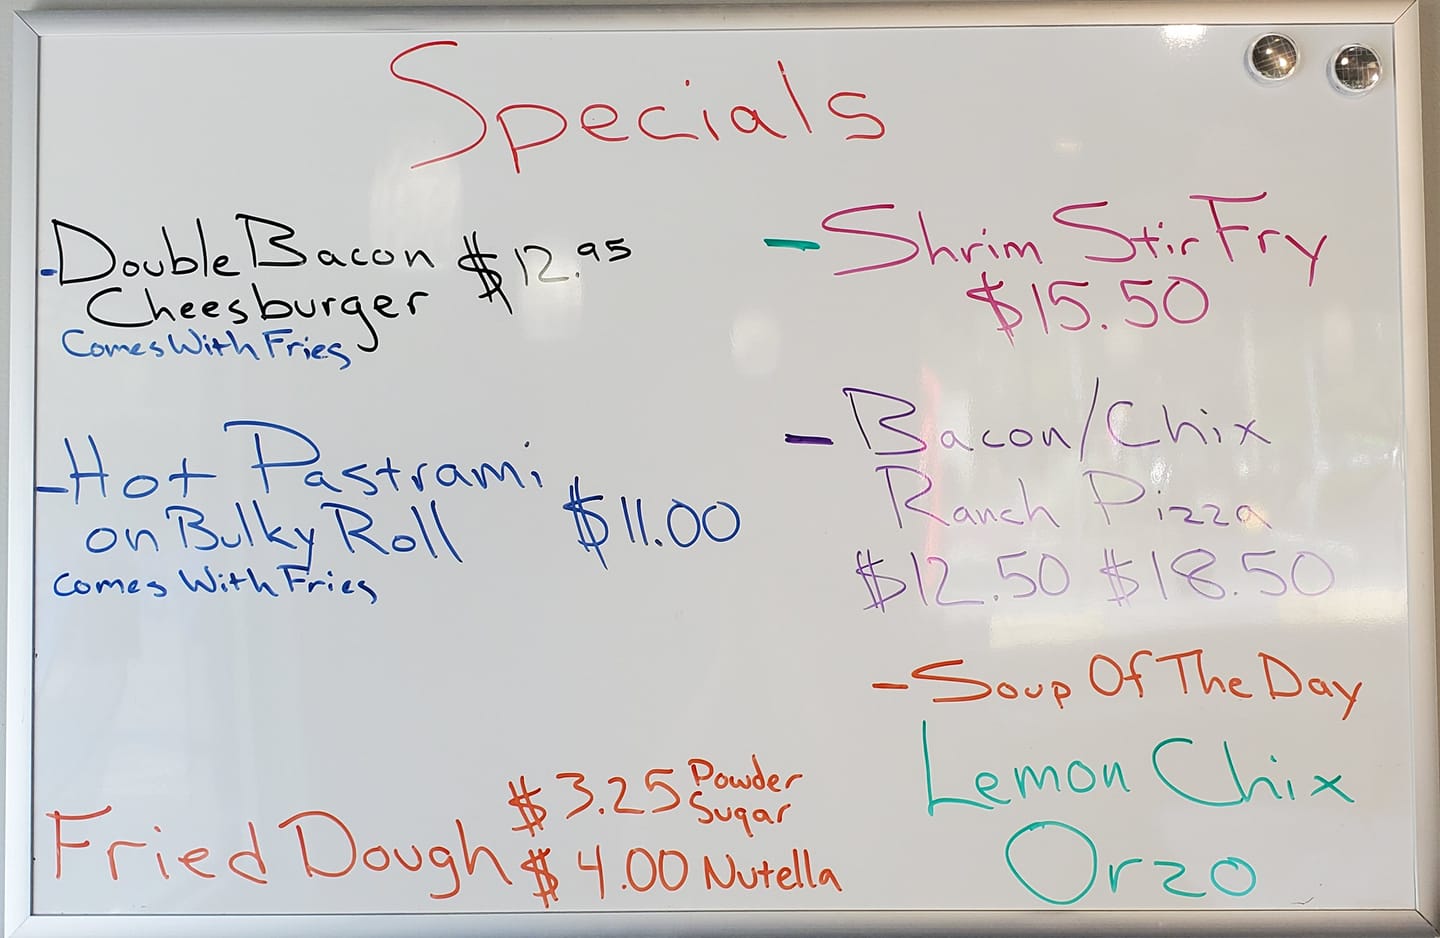 Specials
-Double Bacon $12.95
Cheesburger
Comes With Fries
-Hot Pastrami
on Bulky Roll $11.00
Comes With Fries
Fried Dough $3.25 Powder
Sugar
$4.00 Nutella
-Shrim Stir Fry
$15.50
-Bacon/Chix
Ranch Pizza
$12.50 $18.50
-Soup Of The Day
Lemon Chix
Orzo